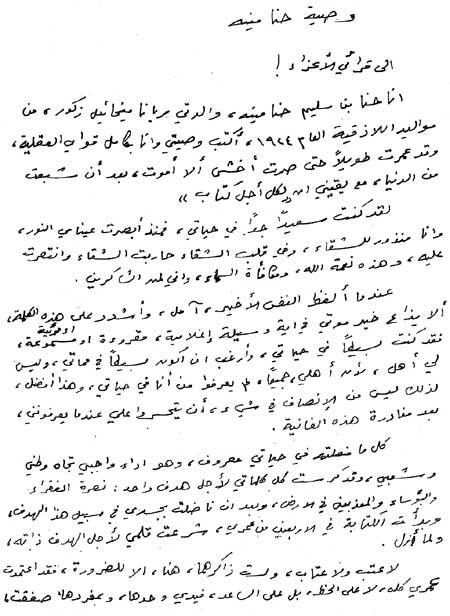 وصية حنا مينه
الى قرائي الأعزاء !
انا حنا بن سليم حنا مينه، والدتي مريانا ميخائيل زكور، من
مواليد اللاذقية العام ١٩٢٤، أكتب وصيتي وانا بكامل قواي العقلية،
وقد عمرت طويلاً حتى صرت أخشى ألا أموت، بعد أن شبعت
من الدنيا، مع يقيني انه "لكل أجل كتاب"
لقد كنت سعيداً جداً في حياتي، فمنذ أبصرت عيناي النور،
وانا منذور للشقاء، وفي قلب الشقاء حاربت الشقاء وانتصرت
عليه، وهذه نعمة الله، ومكافأة السماء، واني لمن الشاكرين.
عندما ألفظ النفس الأخير، آمل، وأشدد على هذه الكلمة،
ألا يذاع خبر موتي في اية وسيلة إعلامية، مقروءة او مسموعة، او مرئية
فقد كنت بسيطاً في حياتي، وأرغب ان أكون بسيطاً في مماتي، وليس
لي أهل، لأن أهلي، جميعاً، لم يعرفوا من أنا في حياتي، وهذا أفضل،
لذلك ليس من الإنصاف في شيء، أن يتحسروا علي عندما يعرفونني،
بعد مغادرة هذه الفانية.
كل ما فعلته في حياتي معروف، وهو اداء واجبي تجاه وطني
وشعبي، وقد كرست كل كلماتي لأجل هدف واحد: نصرة الفقراء
والبؤساء والمعذبين في الارض، وبعد ان ناضلت بجسدي في سبيل هذا الهدف،
وبدأت الكتابة في الاربعين من عمري، شرعت قلمي لأجل الهدف ذاته،
ولما أزل.
لا عتب ولا عتاب، ولست ذاكرهما، هنا، الا للضرورة، فقد اعتمدت
عمري كله، لا على الحظ، بل على الساعد، فيدي وحدها، وبمفردها صفقت،